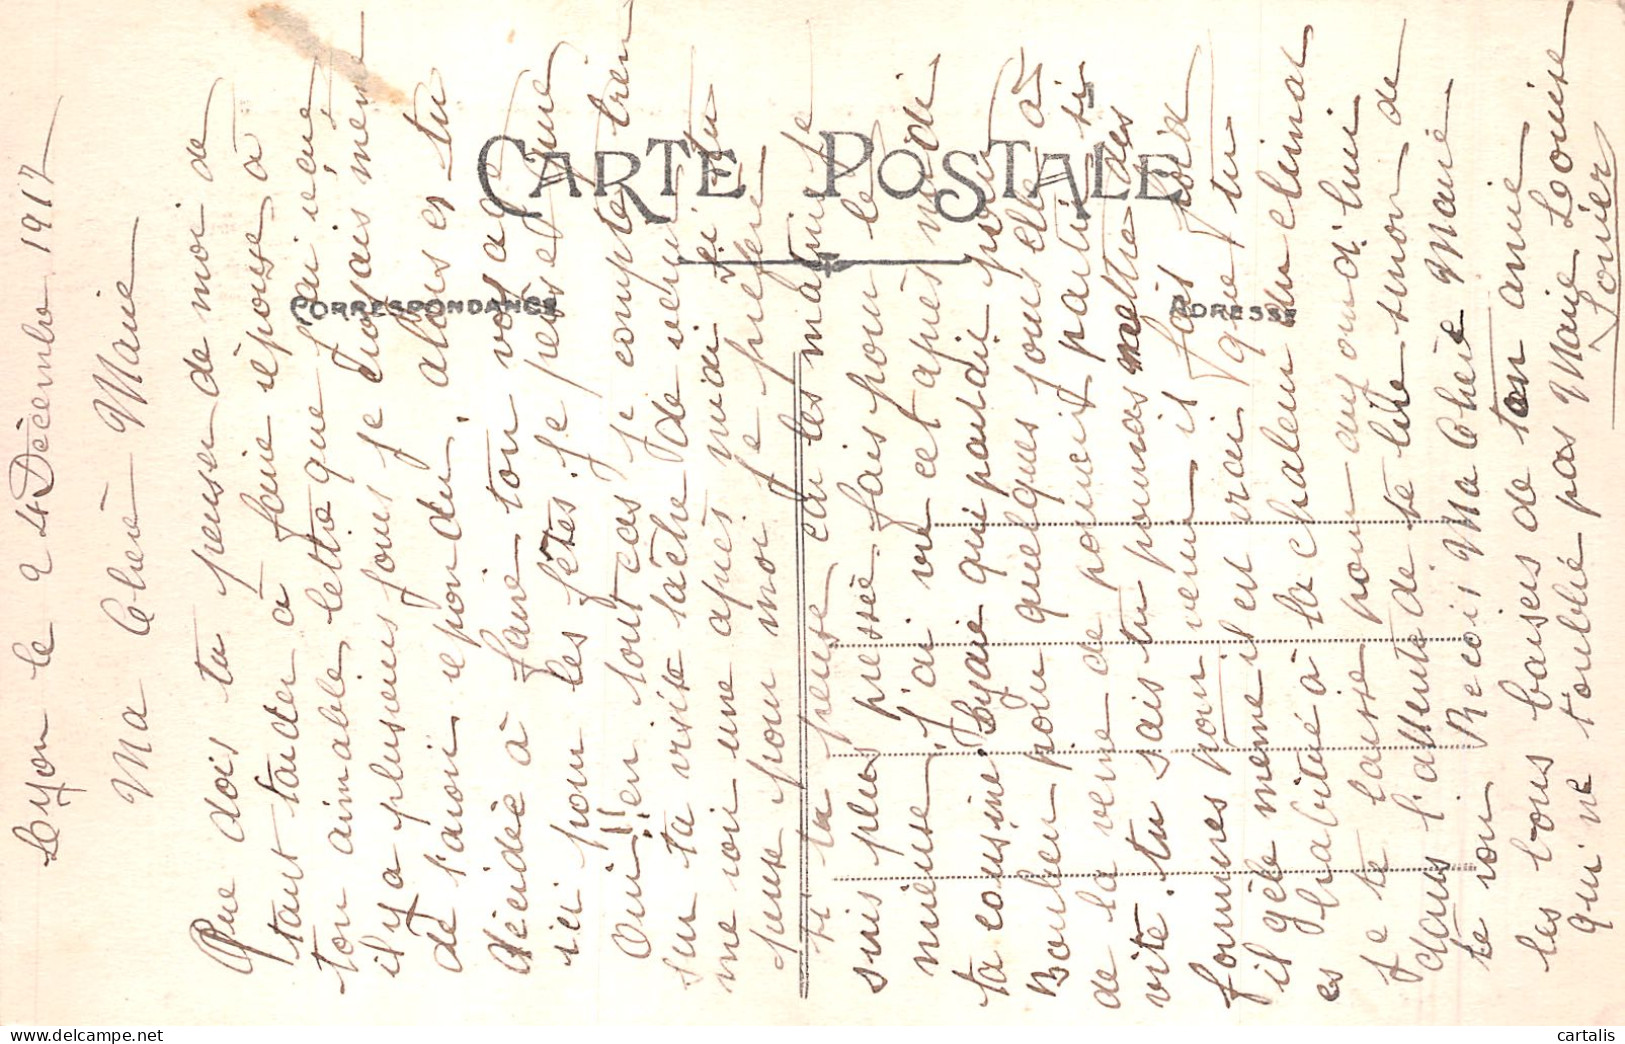 CARTE POSTALE
CORRESPONDANCE
ADRESSE
Lyon le 24 Décembre 1917
Ma Chère Marie
Que dois tu penser de moi de
tant tarder à faire réponse à
ton aimable lettre que j'ai reçue
il y a plusieurs jours je croyais même
de t'avoir répondu. alors es tu
décidée à faire ton voyage
ici pour les fêtes. je pense que
Oui!! en tout cas je compte bien
sur ta visite tâche de venir
me voir une après midi si tu
peux pour moi je préfère
l'après midi car les matins je
suis plus pressée fais pour le
mieux. j'ai vu cet après midi
ta cousine qui part
pour quelques jours elle a
de la veine de pouvoir partir si
vite. tu sais tu pourras mettre des
fourrures pour venir il fais froid
il gèle même il est vrai que tu
es habituée à la chaleur du climat
je te laisse pour aujourd'hui
dans l'attente de te lire sinon de
te voir Reçois Ma Chère Marie
les bons baisers de ton amie
qui ne t'oublie pas Marie Louise
cartalis